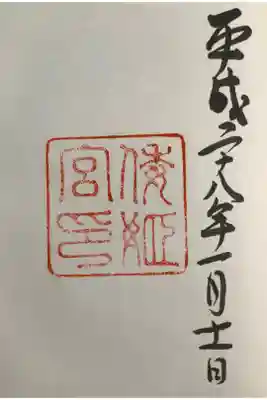 平成二十八年一月十一日
倭姫
宮印